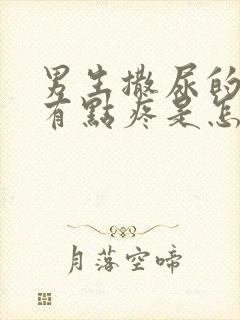 男生撒尿的
有點疼是怎
月落空啼